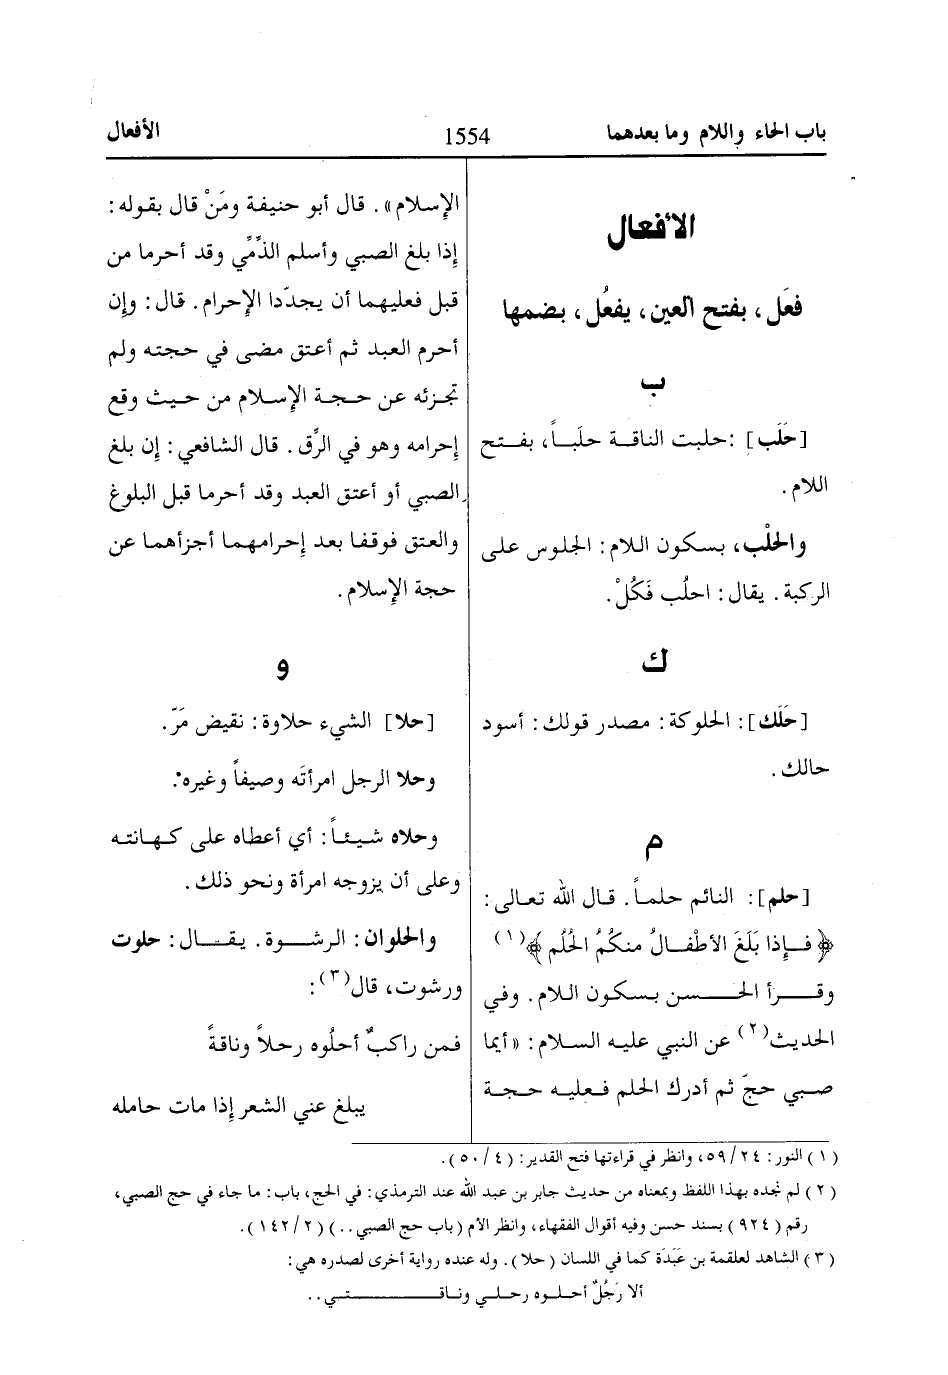 باب الحاء واللام وما بعدهما 1554 الأفعال
الأفعال
فعَل، بفتح العين، يفعُل، بضمها
ب
[حَلَب] : حلبت الناقة حلَباً، بفتح
اللام.
والحلْب، بسكون اللام: الجلوس على
الركبة. يقال: احلُب فَكُلْ.
ك
[حَلَك]: الحلوكة: مصدر قولك: أسود
حالك.
م
[حلم]: النائم حلماً. قال الله تعالى:
﴿ فإذا بَلَغَ الأطفالُ منكمُ الحُلُم ﴾(١)
وقرأ الحسن بسكون اللام. وفي
الحديث(٢) عن النبي عليه السلام: «أيما
صبي حجّ ثم أدرك الحلم فعليه حجة
الإسلام». قال أبو حنيفة ومَنْ قال بقوله:
إذا بلغ الصبي وأسلم الذِّمِّي وقد أحرما من
قبل فعليهما أن يجدّدا الإحرام. قال: وإن
أحرم العبد ثم أعتق مضى في حجته ولم
تجزئه عن حجة الإسلام من حيث وقع
إحرامه وهو في الرِّق. قال الشافعي: إن بلغ
الصبي أو أعتق العبد وقد أحرما قبل البلوغ
والعتق فوقفا بعد إحرامهما أجزأهما عن
حجة الإسلام.
و
[حلا] الشيء حلاوة: نقيض مَرّ.
وحلا الرجل امرأتَه وصيفاً وغيره.
وحلاه شيئاً: أي أعطاه على كهانته
وعلى أن يزوجه امرأة ونحو ذلك.
والحلوان: الرشوة. يقال: حلوت
ورشوت، قال(٣):
فمن راكبٌ أحلُوه رحلاً وناقةً
يبلغ عني الشعر إذا مات حامله
(١) النور: ٥٩/٢٤، وانظر في قراءتها فتح القدير: (٥٠/٤).
(٢) لم نجده بهذا اللفظ وبمعناه من حديث جابر بن عبد الله عند الترمذي: في الحج، باب: ما جاء في حج الصبي،
رقم (٩٢٤) بسند حسن وفيه أقوال الفقهاء، وانظر الأم (باب حج الصبي..) (١٤٢/٢).
(٣) الشاهد لعلقمة بن عَبَدَة كما في اللسان (حلا). وله عنده رواية أخرى لصدره هي:
ألا رَجُلٌ أحلوه رحلي وناقتي..